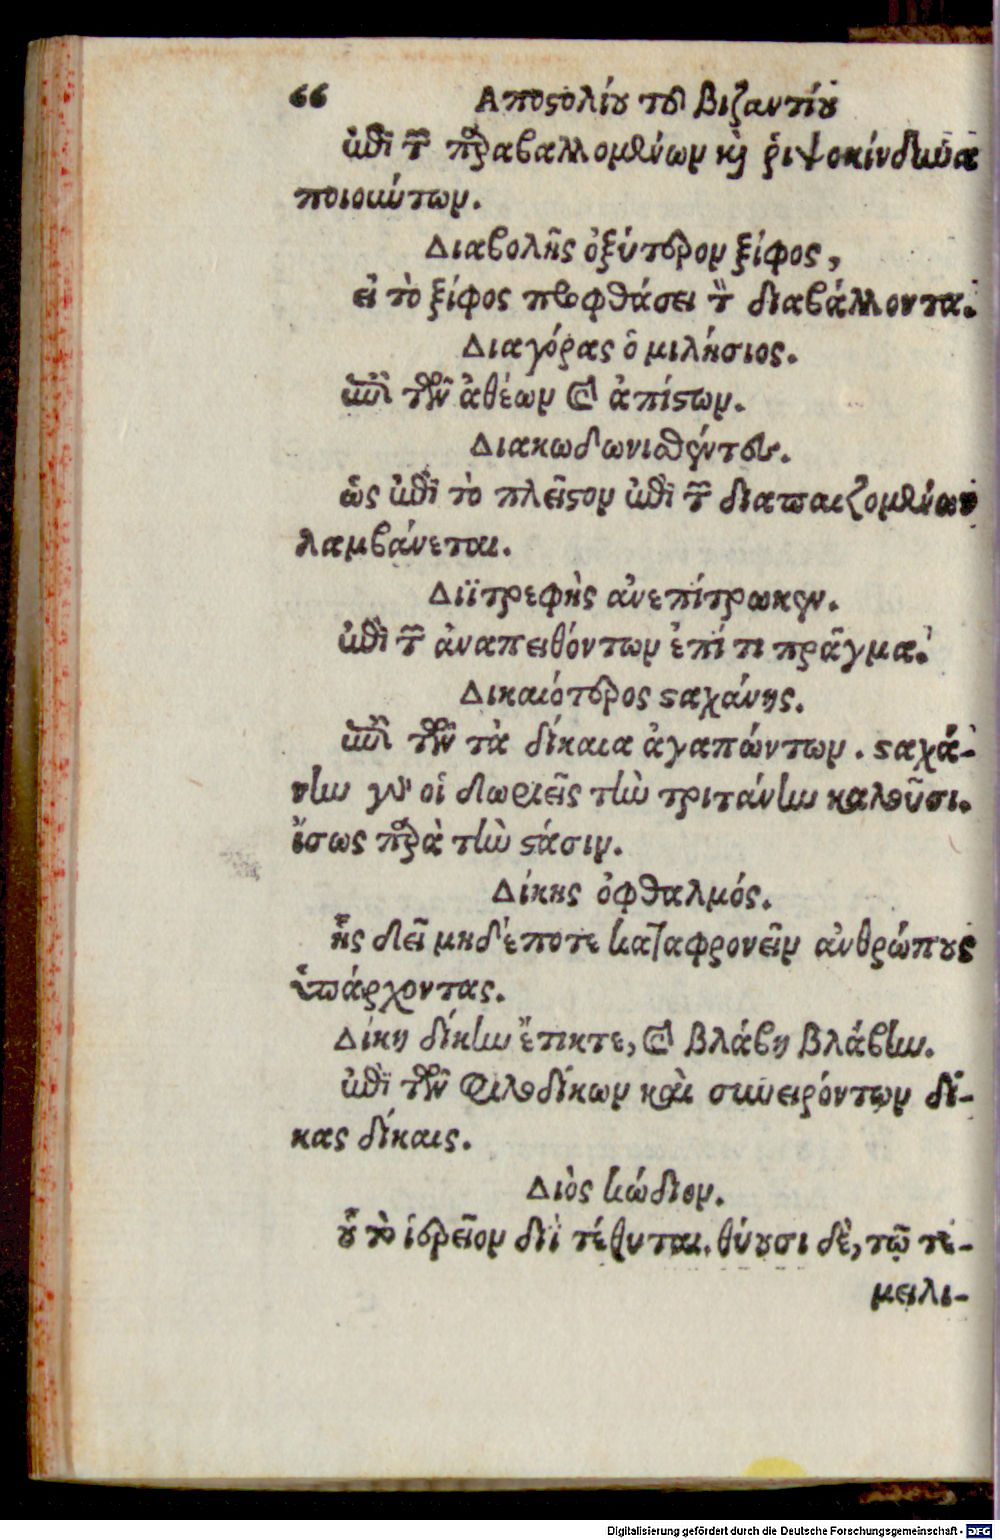 66 Αποστολίου του βιζαντίου
ἐπὶ τῶν παραβαλλομένων καὶ ῥιψοκίνδυνα
ποιούντων.
Διαβολῆς ὀξύτερον ξίφος,
εἰ τὸ ξίφος προφθάσει τὸν διαβάλλοντα.
Διαγόρας ὁ μιλήσιος.
ἐπὶ τῶν ἀθέων καὶ ἀπίστων.
Διακωδωνισθέντες.
ὡς ἐπὶ τὸ πλεῖστον ἐπὶ τῶν διαπαιζομένων
λαμβάνεται.
Διϊτρεφὴς ἀνεπίτρωκεν.
ἐπὶ τῶν ἀναπειθόντων ἐπί τι πρᾶγμα.
Δικαιότερος σταχάνης.
ἐπὶ τῶν τὰ δίκαια ἀγαπώντων. σταχά-
νην γὰρ οἱ δωριεῖς τὴν τριτάνην καλοῦσι.
ἴσως παρὰ τὴν στάσιν.
Δίκης ὀφθαλμός.
ἧς δεῖ μηδέποτε καταφρονεῖν ἀνθρώπους
ὑπάρχοντας.
Δίκη δίκην ἔτικτε, καὶ βλάβη βλάβην.
ἐπὶ τῶν φιλοδίκων καὶ συνειρόντων δί-
κας δίκαις.
Διὸς κώδιον.
οὗ τὸ ἱερεῖον διὶ τέθυται. θύουσι δὲ, τῷ τε
μειλι-
Digitalisierung gefördert durch die Deutsche Forschungsgemeinschaft - DFG